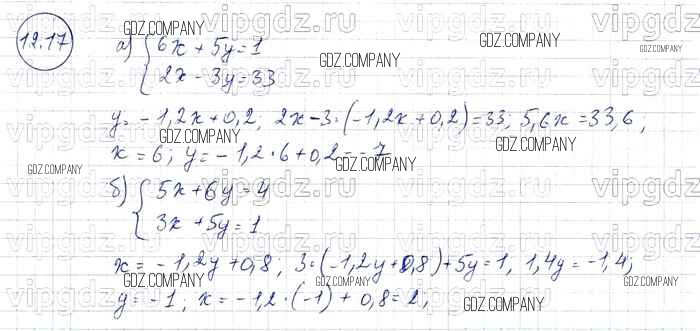 12.17
а) { 6x + 5y = 1
2x - 3y = 33
y = -1,2x + 0,2; 2x - 3·(-1,2x + 0,2) = 33; 5,6x = 33,6;
x = 6; y = -1,2·6 + 0,2 = -7
б) { 5x + 6y = 4
3x + 5y = 1
x = -1,2y + 0,8; 3·(-1,2y + 0,8) + 5y = 1, 1,4y = -1,4;
y = -1; x = -1,2·(-1) + 0,8 = 2,
GDZ.COMPANY
GDZ.COMPANY
GDZ.COMPANY
GDZ.COMPANY
GDZ.COMPANY
GDZ.COMPANY
GDZ.COMPANY
GDZ.COMPANY
GDZ.COMPANY
GDZ.COMPANY
GDZ.COMPANY
GDZ.COMPANY
GDZ.COMPANY
GDZ.COMPANY
vipgdz.ru